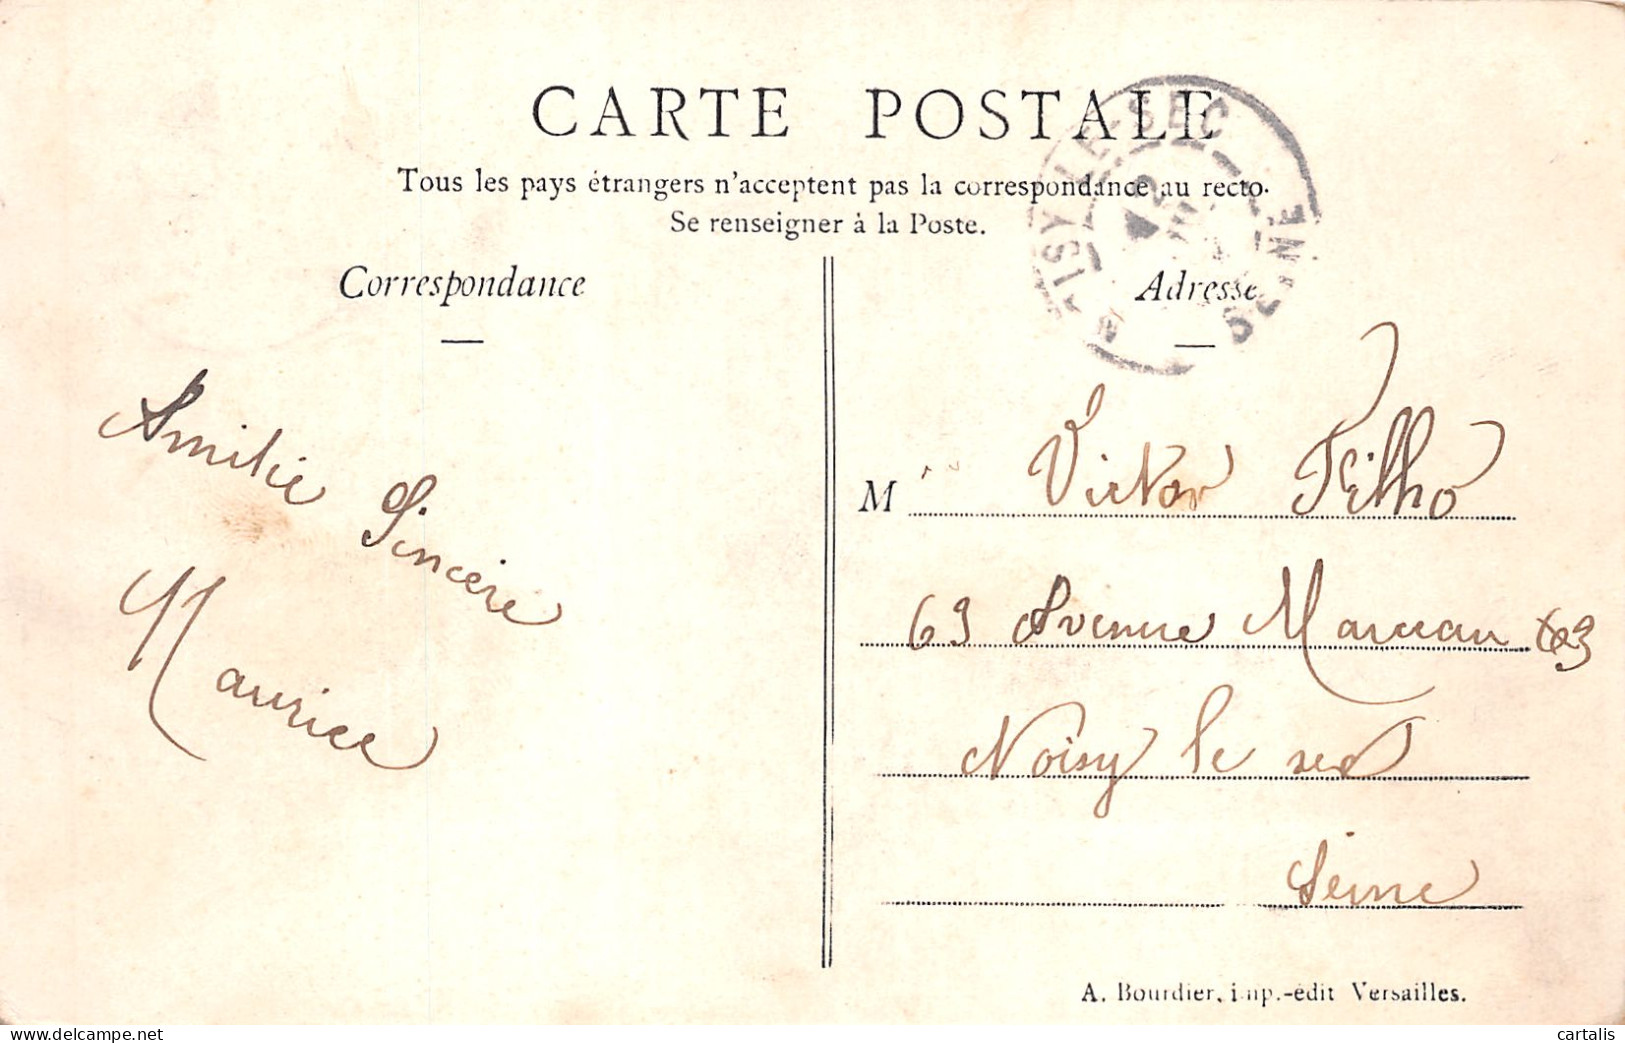 CARTE POSTALE
Tous les pays étrangers n'acceptent pas la correspondance au recto.
Se renseigner à la Poste.
Correspondance
Adresse
NOISY-LE-SEC
SEINE
Amitié Sincère
Maurice
M Victor
63 Avenue Marceau 63
Noisy le sec
Seine
A. Bourdier, imp.-édit Versailles.
cartalis